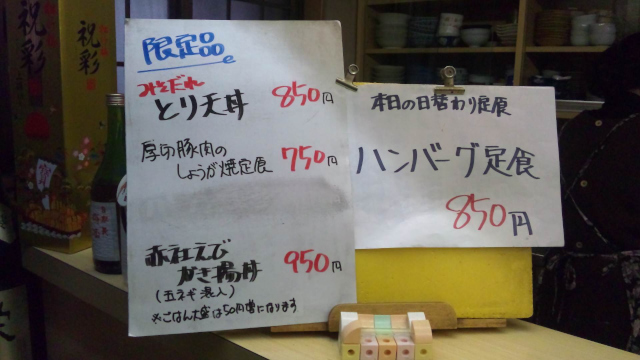 限定品
みそだれ
とり天丼 850円
厚切豚肉の
しょうが焼定食 750円
えび
かき揚丼 950円
(玉ネギ
※ごはん大盛は50円増になります
本日の日替わり定食
ハンバーグ定食
850円
祝彩
祝彩